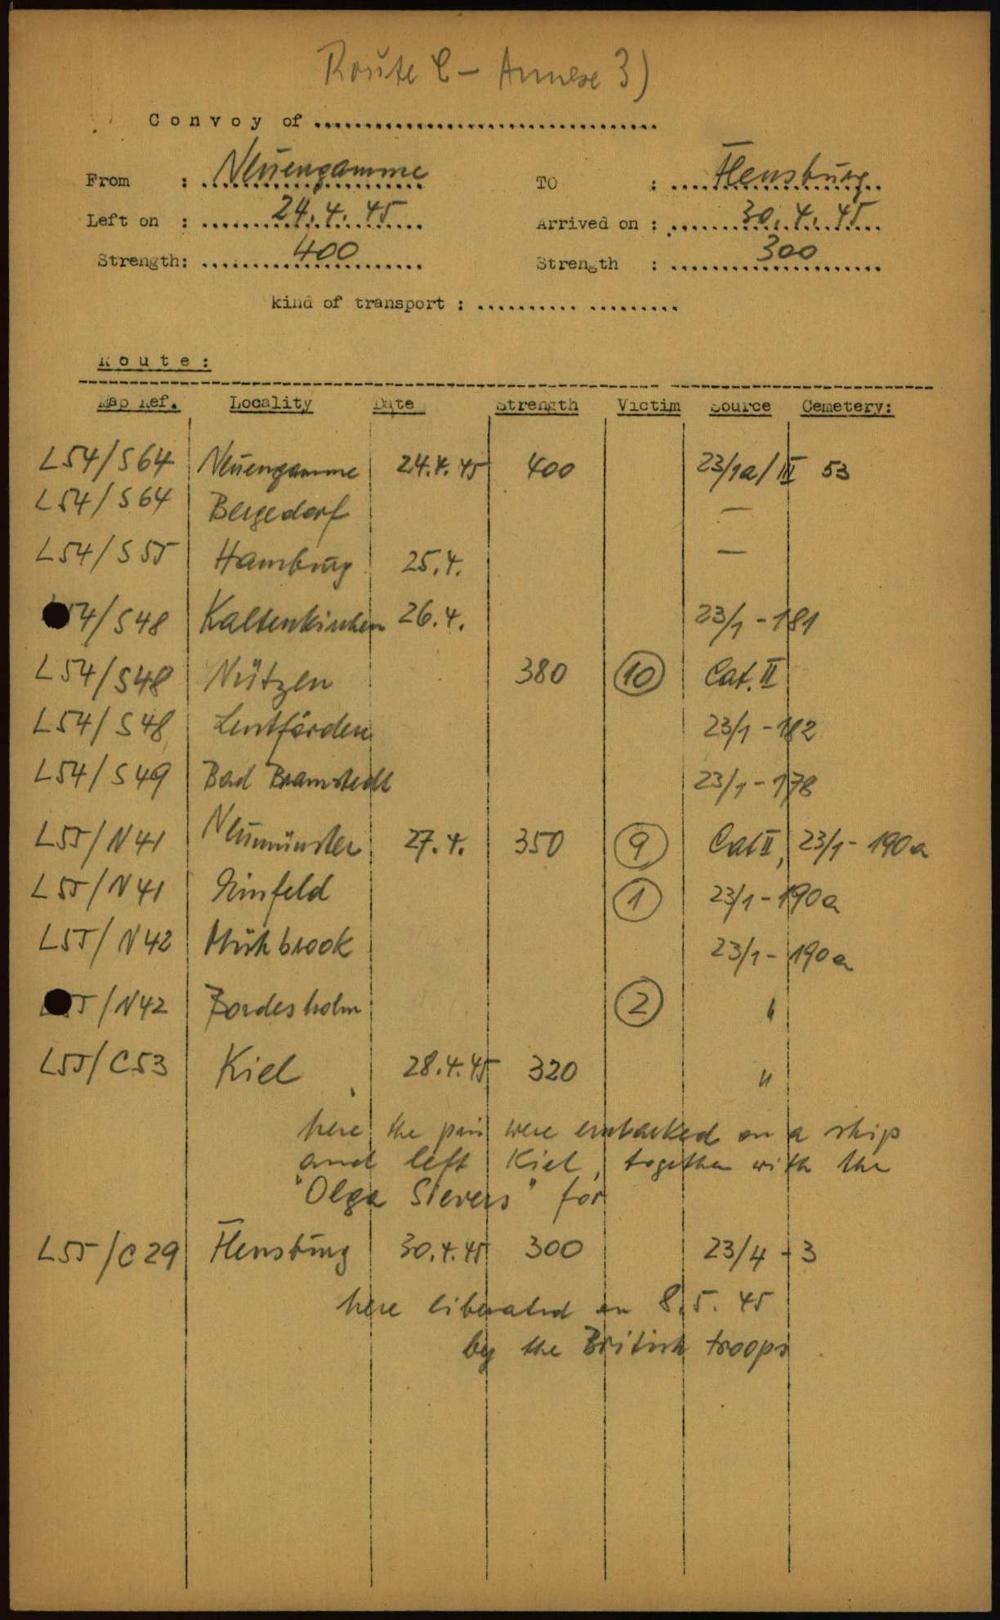 Route C - Annexe 3)
Convoy of ..................................
From : Neuengamme TO : Flensburg
Left on : 24.4.45 Arrived on : 30.4.45
Strength: 400 Strength : 300
kind of transport : .......... .........
Route:
Map Ref. Locality Date Strength Victim Source Cemetery:
L54/S64 Neuengamme 24.4.45 400 23/1a/III 53
L54/S64 Bergedorf —
L54/S55 Hamburg 25.4. —
54/S48 Kaltenkirchen 26.4. 23/1 - 181
L54/S48 Nützen 380 10 Cat. II
L54/S48 Lentförden 23/1 - 182
L54/S49 Bad Bramstedt 23/1 - 178
L55/N41 Neumünster 27.4. 350 9 Cat II, 23/1 - 190a
L55/N41 Einfeld 1 23/1 - 190a
L55/N42 Mühbrook 23/1 - 190a
5/N42 Bordesholm 2 "
L55/C53 Kiel 28.4.45 320 "
here the pris were embarked on a ship
and left Kiel, together with the
"Olga Sievers" for
L55/C29 Flensburg 30.4.45 300 23/4 - 3
here liberated on 8.5.45
by the British troops